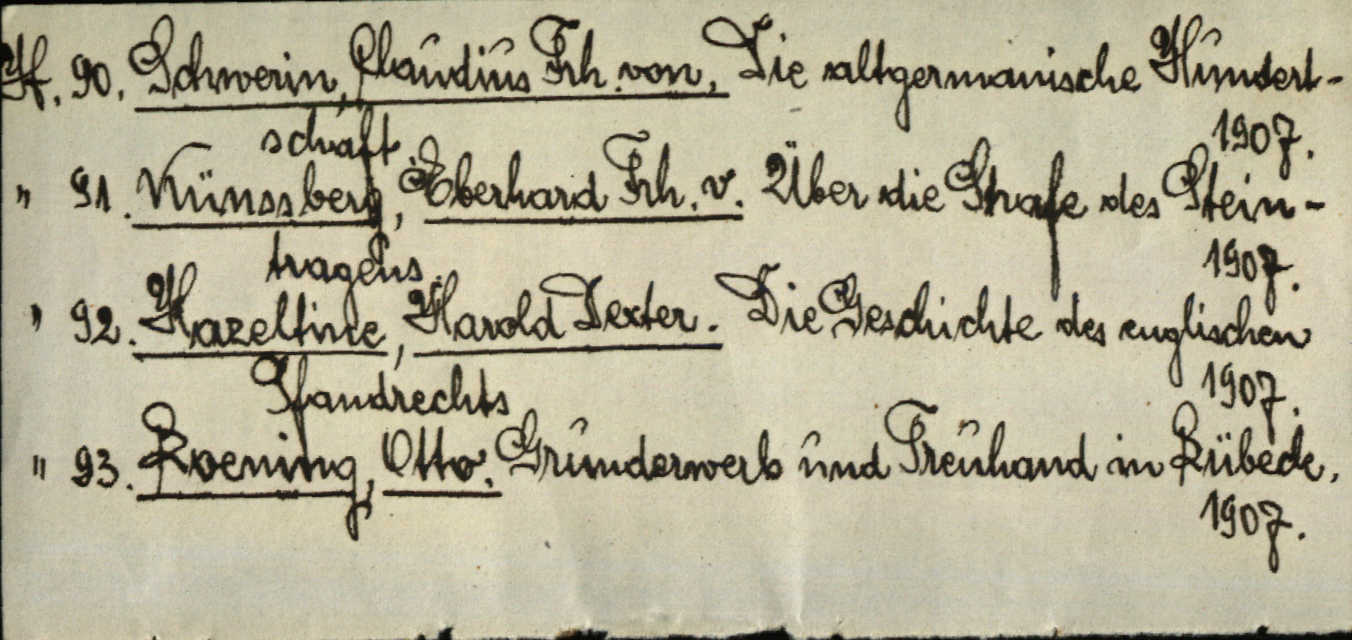 Hf. 90. Schwerin, Claudius Frh. von, Die altgermanische Hundert-
schaft. 1907.
" 91. Künssberg, Eberhard Frh. v. Über die Strafe des Stein-
tragens. 1907.
" 92. Hazeltine, Harold Dexter. Die Geschichte des englischen
Pfandrechts 1907.
" 93. Loening, Otto. Grunderwerb und Treuhand in Lübeck.
1907.